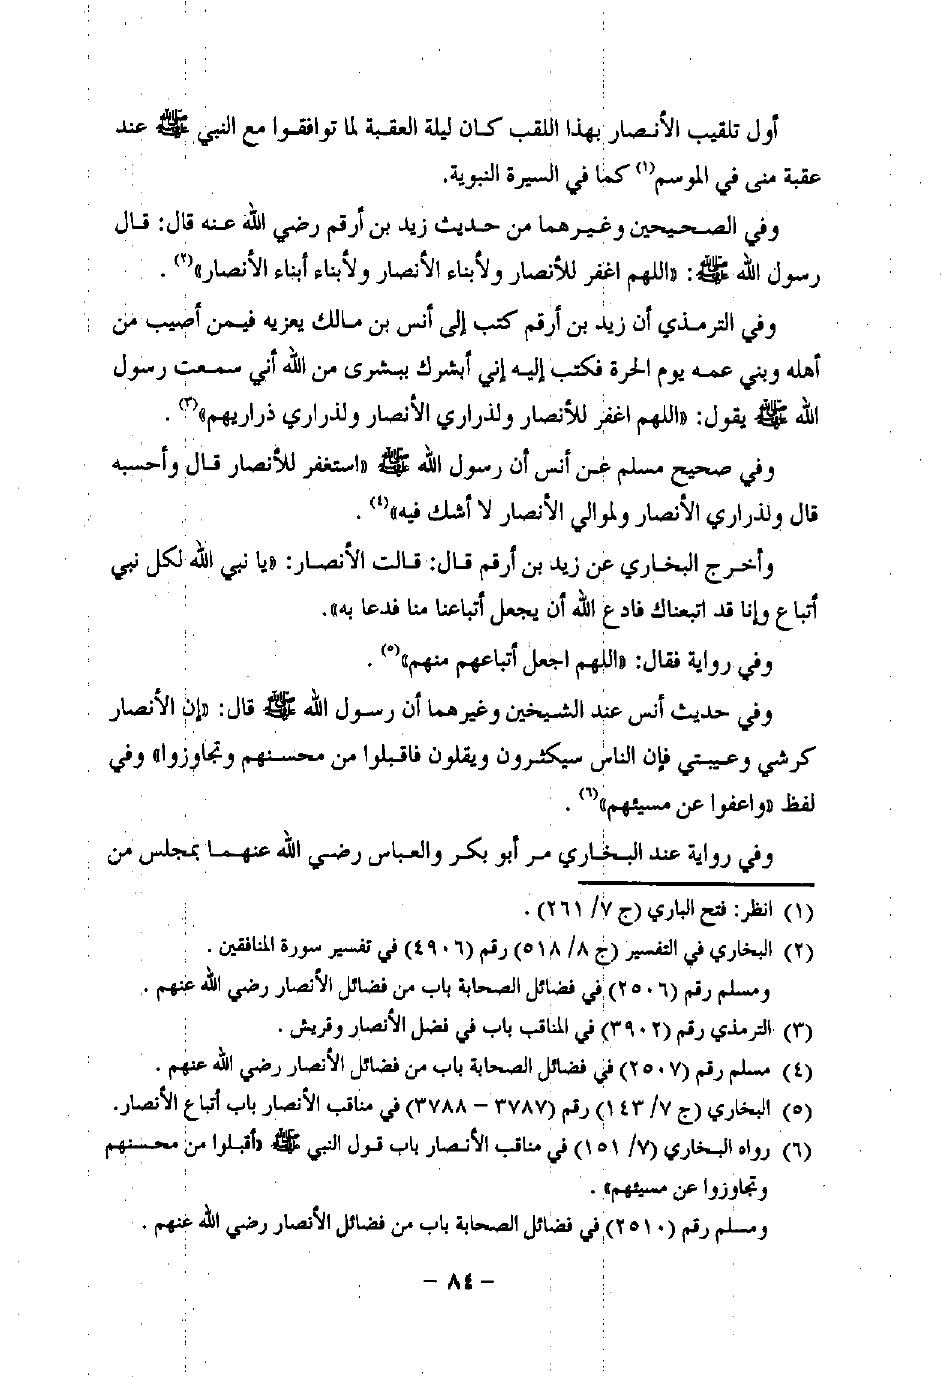 أول تلقيب الأنصار بهذا اللقب كان ليلة العقبة لما توافقوا مع النبي ﷺ عند
عقبة منى في الموسم(١) كما في السيرة النبوية.
وفي الصحيحين وغيرهما من حديث زيد بن أرقم رضي الله عنه قال: قال
رسول الله ﷺ: «اللهم اغفر للأنصار ولأبناء الأنصار ولأبناء أبناء الأنصار»(٢) .
وفي الترمذي أن زيد بن أرقم كتب إلى أنس بن مالك يعزيه فيمن أصيب من
أهله وبني عمه يوم الحرة فكتب إليه إني أبشرك ببشرى من الله أني سمعت رسول
الله ﷺ يقول: «اللهم اغفر للأنصار ولذراري الأنصار ولذراري ذراريهم»(٣) .
وفي صحيح مسلم عن أنس أن رسول الله ﷺ «استغفر للأنصار قال وأحسبه
قال ولذراري الأنصار ولموالي الأنصار لا أشك فيه»(٤) .
وأخرج البخاري عن زيد بن أرقم قال: قالت الأنصار: «يا نبي الله لكل نبي
أتباع وإنا قد اتبعناك فادع الله أن يجعل أتباعنا منا فدعا به».
وفي رواية فقال: «اللهم اجعل أتباعهم منهم»(٥) .
وفي حديث أنس عند الشيخين وغيرهما أن رسول الله ﷺ قال: «إن الأنصار
كرشي وعيبتي فإن الناس سيكثرون ويقلون فاقبلوا من محسنهم وتجاوزوا» وفي
لفظ «واعفوا عن مسيئهم»(٦) .
وفي رواية عند البخاري مر أبو بكر والعباس رضي الله عنهما بمجلس من
(١) انظر: فتح الباري (ج ٧/ ٢٦١) .
(٢) البخاري في التفسير (ج ٨/ ٥١٨) رقم (٤٩٠٦) في تفسير سورة المنافقين .
ومسلم رقم (٢٥٠٦) في فضائل الصحابة باب من فضائل الأنصار رضي الله عنهم .
(٣) الترمذي رقم (٣٩٠٢) في المناقب باب في فضل الأنصار وقريش .
(٤) مسلم رقم (٢٥٠٧) في فضائل الصحابة باب من فضائل الأنصار رضي الله عنهم .
(٥) البخاري (ج ٧/ ١٤٣) رقم (٣٧٨٧ – ٣٧٨٨) في مناقب الأنصار باب أتباع الأنصار.
(٦) رواه البخاري (٧/ ١٥١) في مناقب الأنصار باب قول النبي ﷺ «أقبلوا من محسنهم
وتجاوزوا عن مسيئهم» .
ومسلم رقم (٢٥١٠) في فضائل الصحابة باب من فضائل الأنصار رضي الله عنهم .
– ٨٤ –